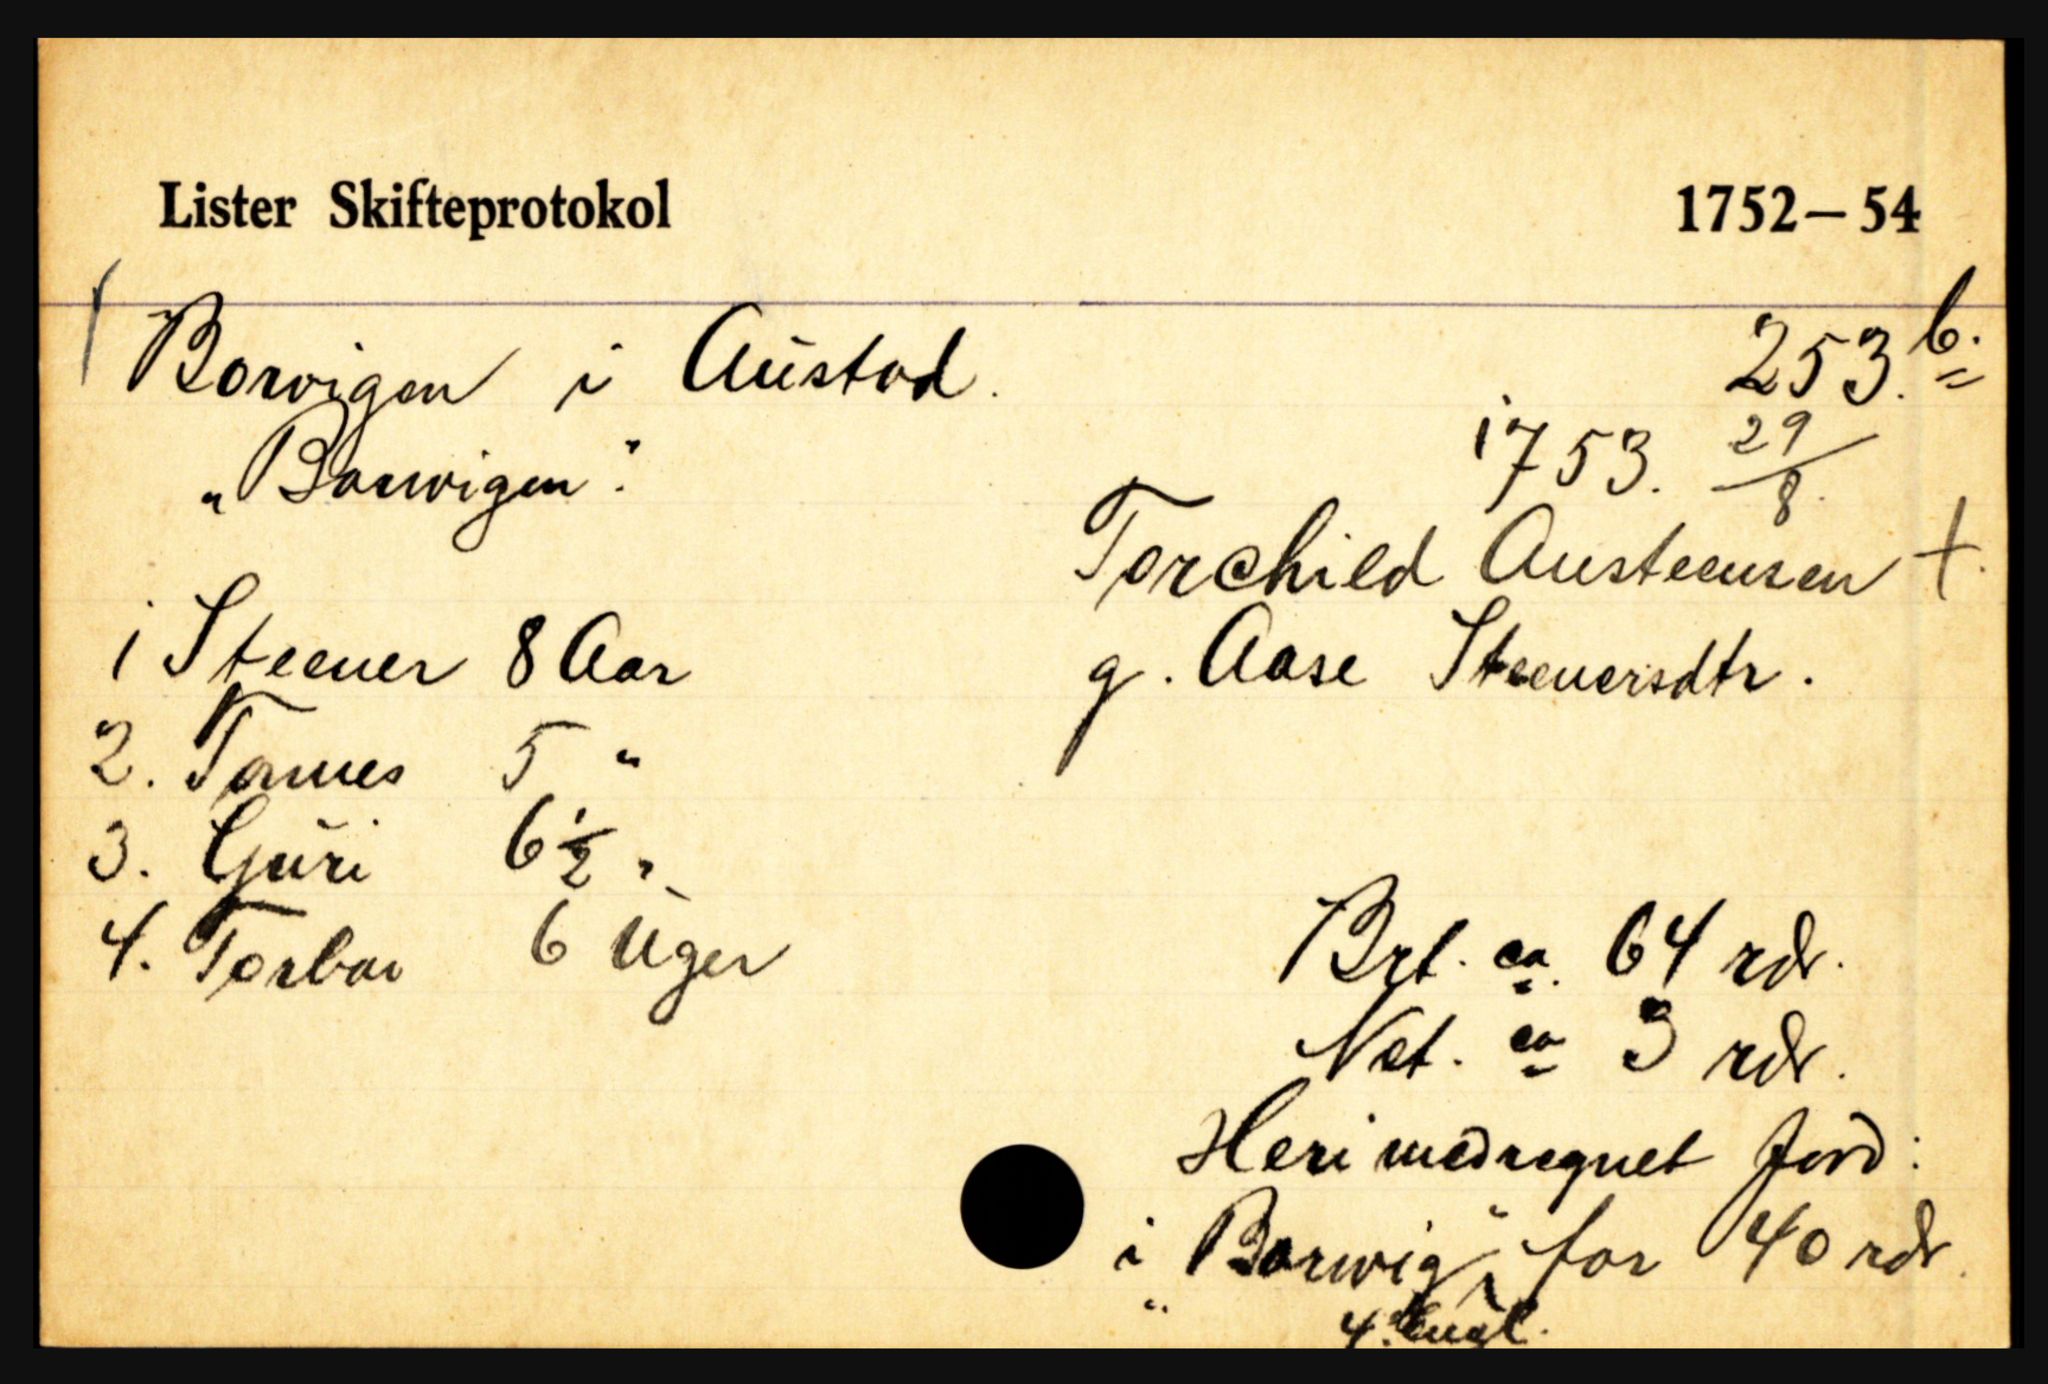 Lister Skifteprotokol 1752–54
Borvigen i Austad. 253.b.
"Borwigen". 1753. 29/8.
Torchild Austeensen +.
g. Aase Steenersdtr.
1 Steener 8 Aar
2. Tønnes 5 "
3. Guri 6 1/2 "
4. Torbor 6 Uger
Brt. ca. 64 rdr.
Net. ca 3 rdr.
Heri medregnet Jord:
i "Borwig" for 40 rdr.
4. Engl.